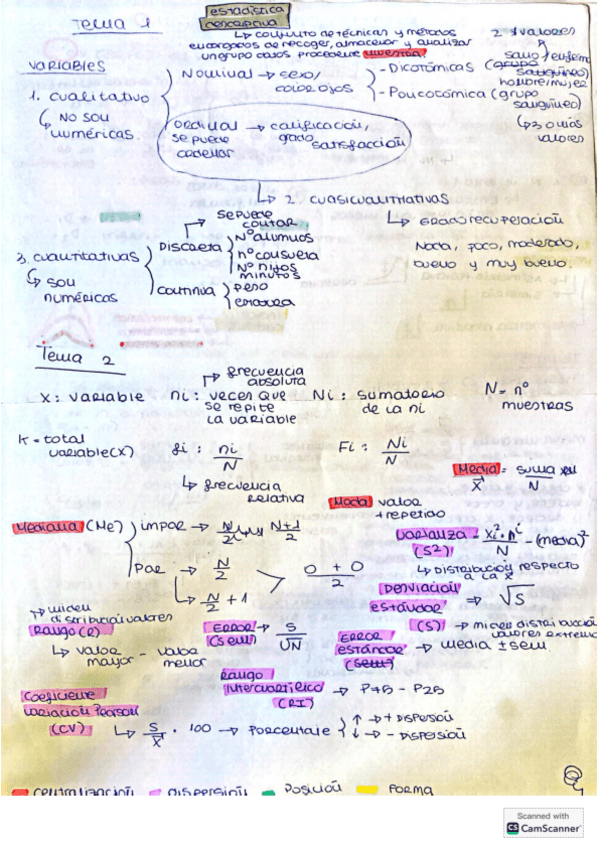 Tema 1
estadística descriptiva
↳ conjunto de técnicas y métodos
de recoger, almacenar y analizar
un grupo datos procedente muestra
2 valores
VARIABLES
1. cualitativo
↳ NO SOU
numéricas.
Nominal → sexo/
color ojos
- Dicotómicas (grupo
sanguíneo)
sano/enfermo
hombre/mujer
- Policotómica (grupo
sanguíneo)
↳ 3 o más
valores
ordinal → calificación,
se puede
ordenar
grado
satisfacción
↳ 2. cuasicualitativas
↳ Grado recuperación
Nada, poco, moderado,
bueno y muy bueno.
3. cuantitativas
↳ sou
numéricas
Discreta
se puede
contar
Nº alumnos
nº consulta
Nº hijos
minutos
continua
peso
Tema 2
x: variable
ni: veces que
se repite
la variable
frecuencia
absoluta
Ni: sumatorio
de la ni
N = nº
muestras
K = total
variable (x)
fi: ni/N
↳ frecuencia
relativa
Fi: Ni/N
Media = suma /N
x̄
Moda: valor
+ repetido
Mediana (Me)
impar → N+1/2
Par → N/2
↳ N/2 + 1
O + O / 2
varianza = xi²·ni/N - (media)²
(S²)
↳ Distribución respecto
a la x̄
Desviación
estándar → √S
(S) → miden distribución
valores extremos
→ miden
distribución valores
Rango (R)
↳ valor mayor - valor menor
ERROR → S/√N
(sem)
ERROR
estándar → media ± sem
(sem)
Rango
intercuartílico → P75 - P25
(RI)
Coeficiente
variación Pearson
(CV)
↳ S/x̄ · 100 → Porcentaje
↑ → + DISPERSIÓN
↓ → - DISPERSIÓN
centralización
DISPERSIÓN
POSICIÓN
FORMA
Scanned with
CS CamScanner